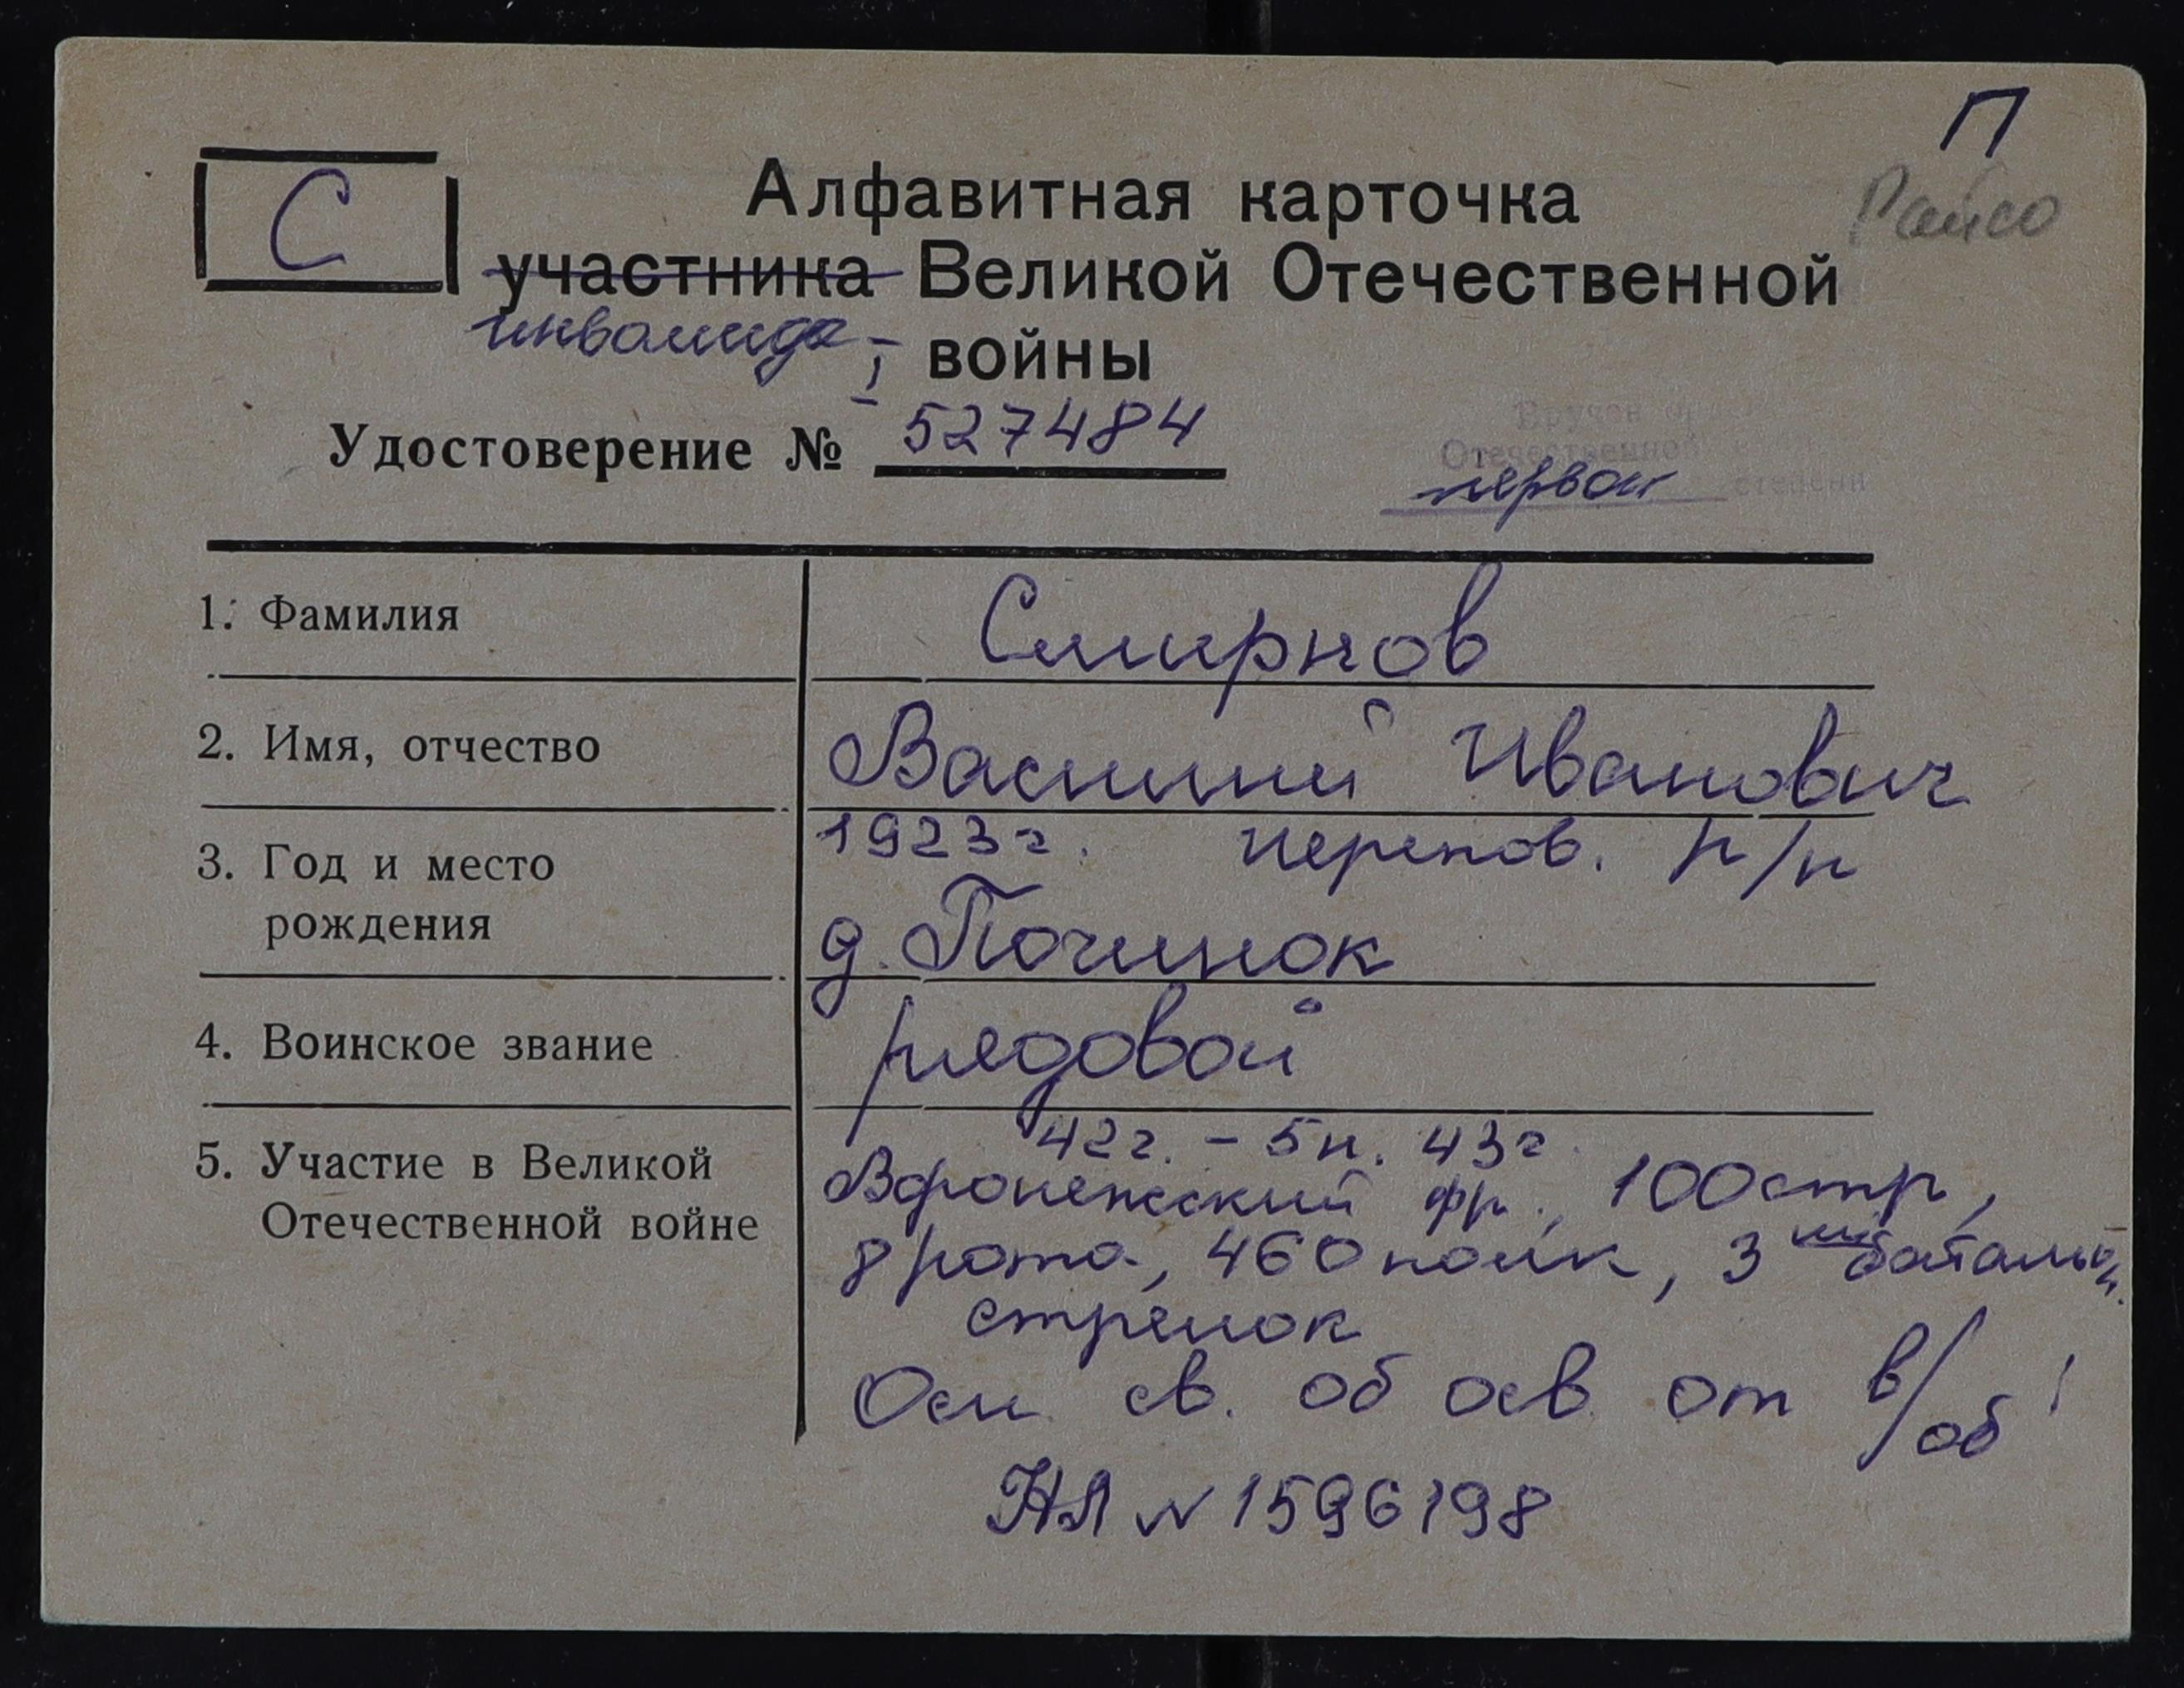 П
Райсо
С
Алфавитная карточка
участника Великой Отечественной
инвалида I войны
Удостоверение № 527484
Вручен
Отечественной
первой степени
1. Фамилия Смирнов
2. Имя, отчество Василий Иванович
3. Год и место 1923 г. Черепов. р/н
рождения д. Починок
4. Воинское звание рядовой
42г. – 5 м. 43г.
5. Участие в Великой Воронежский фр., 100 стр,
Отечественной войне 8 рота, 460 полк, 3ий батальон.
стрелок
Осн. св. об осв. от в/об
НЛ № 1596198